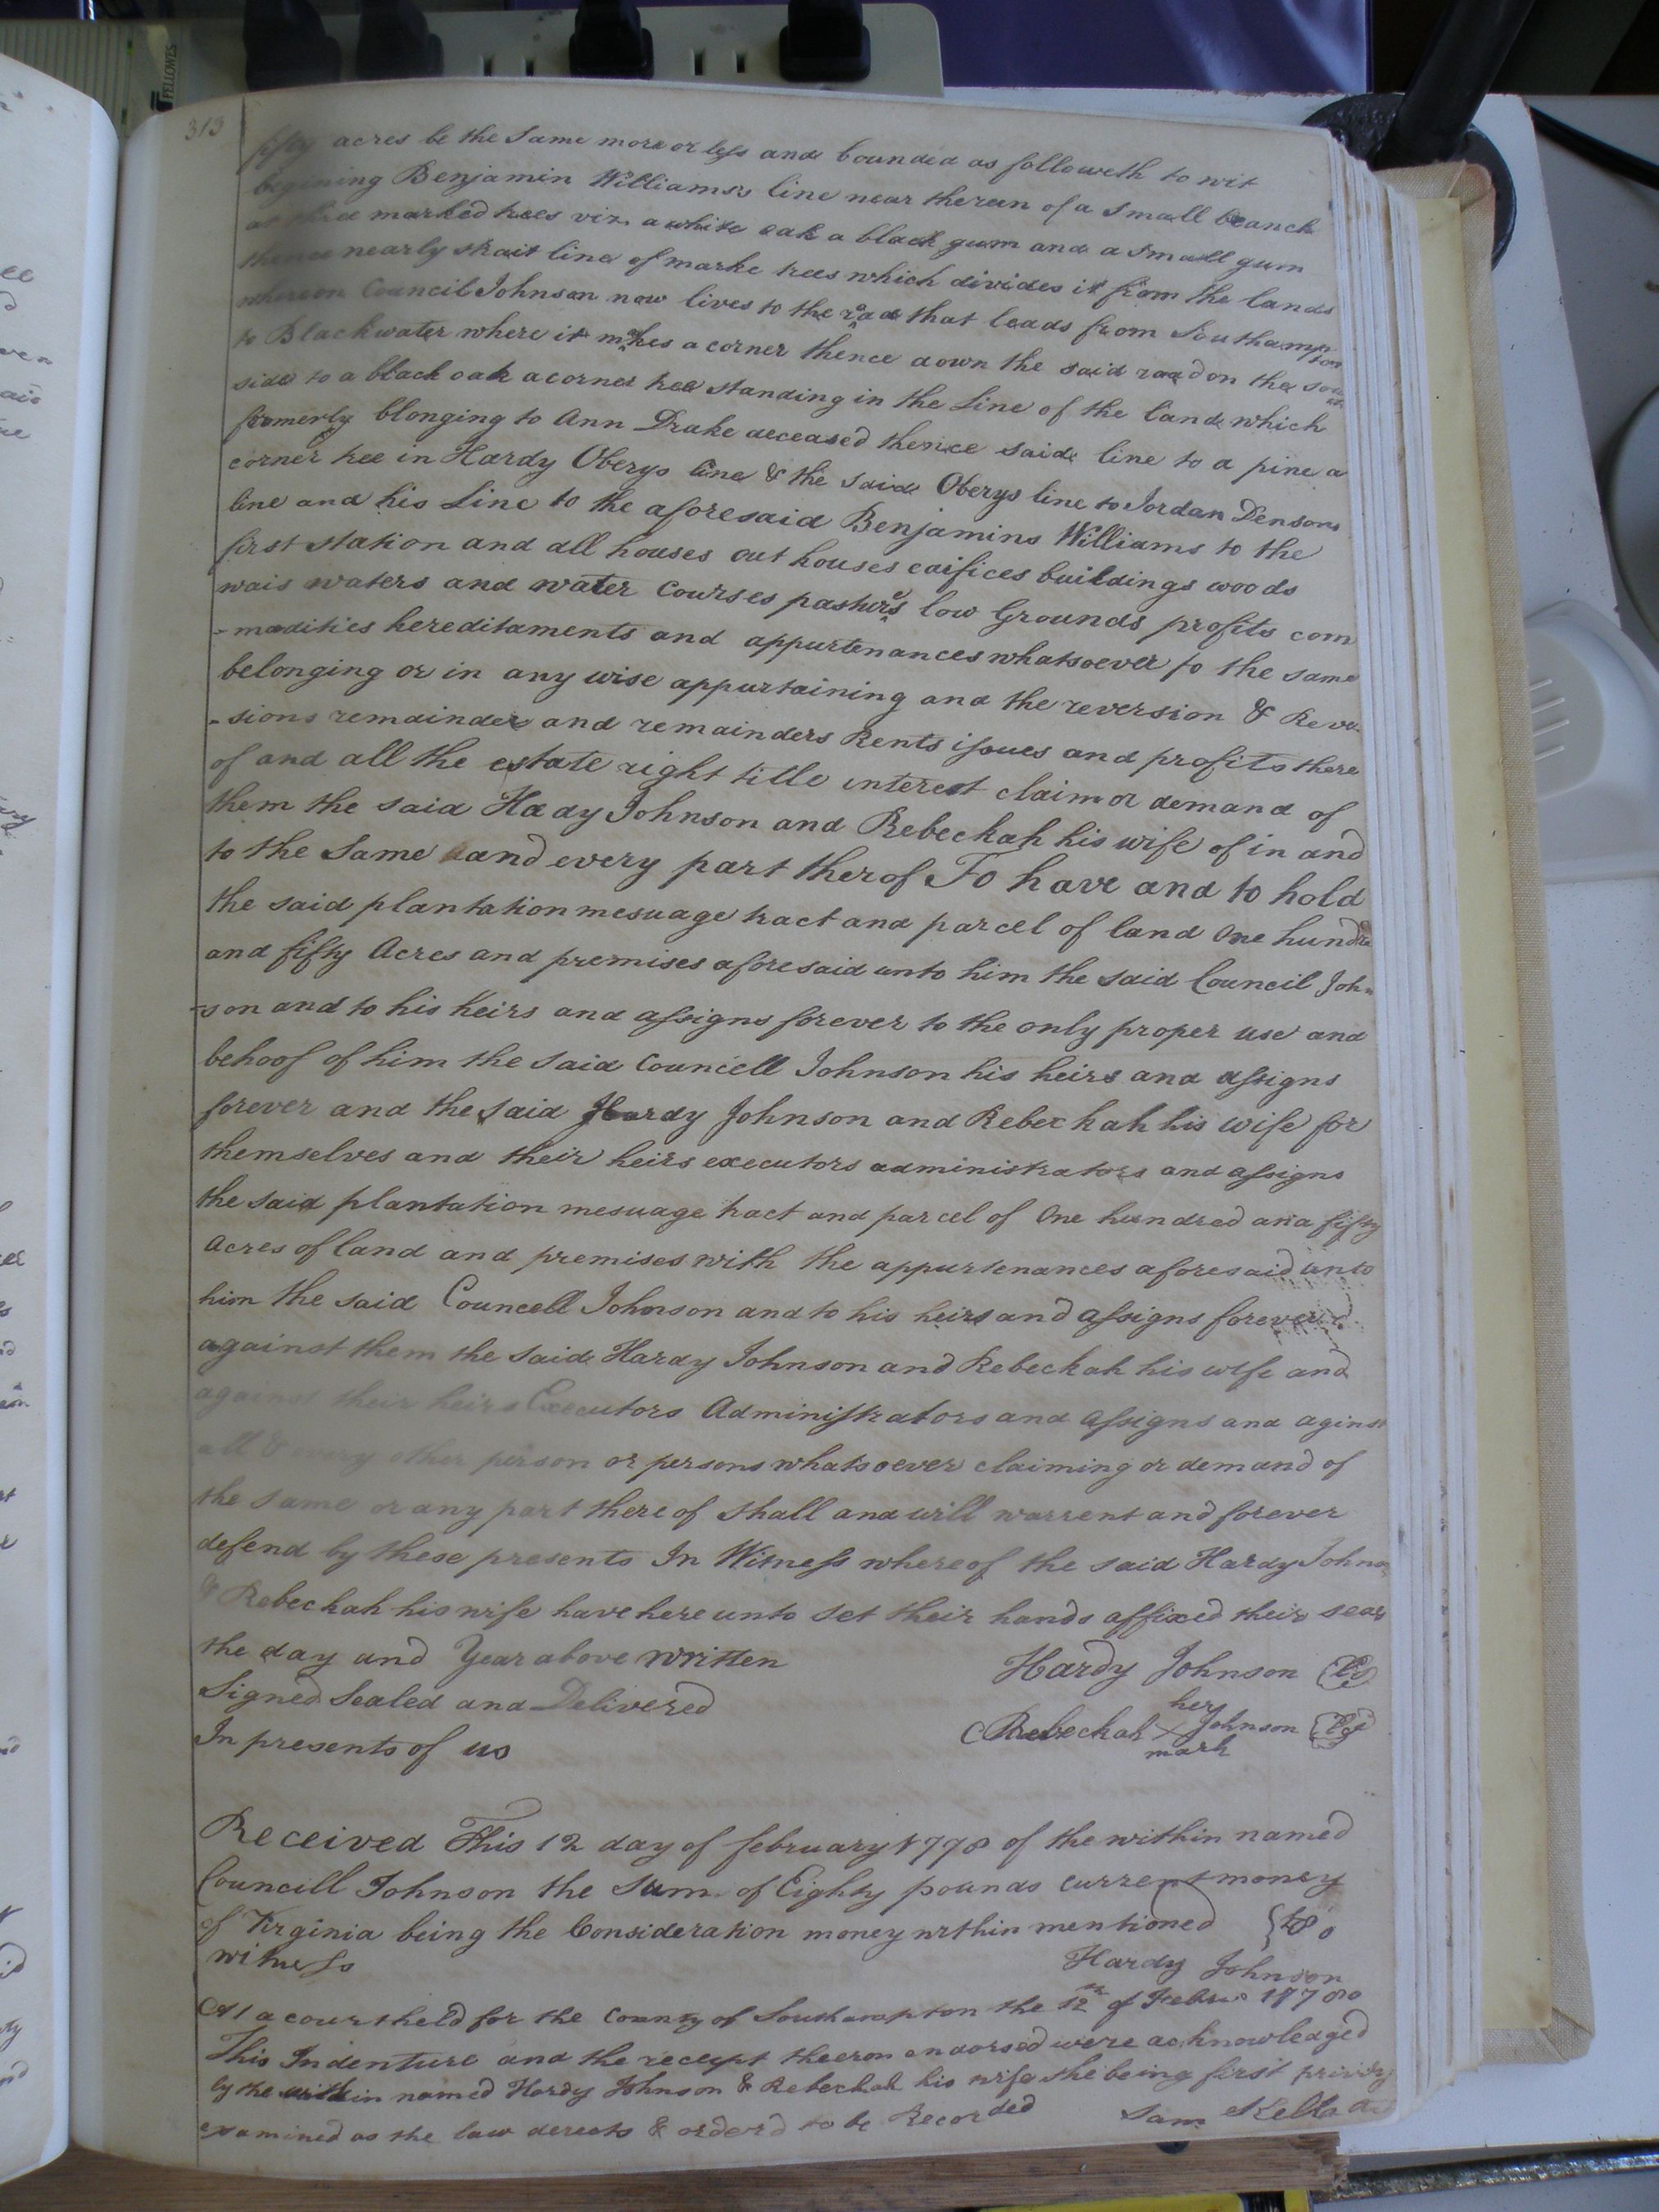 FELLOWES
313
fifty acres be the Same more or less and bounded as followeth to wit
begining Benjamin Williams's line near the run of a Small branch
at three marked trees viz. a white oak a black gum and a Small gum
thence nearly strait line of marke trees which divides it from the lands
whereon Council Johnson now lives to the road that leads from Southampton
to Blackwater where it makes a corner thence down the said road on the south
side to a black oak a corner tree standing in the Line of the land which
fromerly blonging to Ann Drake deceased thence said line to a pine a
corner tree in Hardy Oberys line & the said Oberys line to Jordan Densons
line and his Line to the aforesaid Benjamins Williams to the
first station and all houses out houses edifices buildings woods
wais waters and water Courses pastures low Grounds profits com
-modities hereditaments and appurtenances whatsoever to the same
belonging or in any wise appurtaining and the reversion & Rever
-sions remainder and remainders Rents issues and profits there
of and all the estate right title interest claim or demand of
them the said Hady Johnson and Rebeckah his wife of in and
to the Same and every part therof To have and to hold
the said plantation mesuage tract and parcel of land One hundred
and fifty Acres and premises aforesaid unto him the said Council John
-son and to his heirs and assigns forever to the only proper use and
behoof of him the said Councell Johnson his heirs and assigns
forever and the said Hardy Johnson and Rebeckah his wife for
themselves and their heirs executors administrators and assigns
the said plantation mesuage tract and parcel of One hundred and fifty
Acres of land and premises with the appurtenances aforesaid unto
him the said Councell Johnson and to his heirs and assigns forever
against them the said Hardy Johnson and Rebeckah his wife and
against their heirs Executors Administrators and assigns and aginst
all & every other person or persons whatsoever claiming or demand of
the same or any part there of shall and will warrent and forever
defend by these presents In Witness whereof the said Hardy Johnson
& Rebeckah his wife have here unto set their hands affixed their seals
the day and Year above written Hardy Johnson
Signed Sealed and Delivered her
In presents of us Rebeckah X Johnson
mark
Received This 12 day of february 1778 of the within named
Councill Johnson the Sum of Eighty pounds current money
of Virginia being the Consideration money within mentioned £80
witness Hardy Johnson
At a court held for the County of Southampton the 12th of Febru 1778
This Indenture and the recept theeron endorsed were acknowledged
by the within named Hardy Johnson & Rebeckah his wife she being first privily
examined as the law derects & orderd to be Recorded Sam Kello